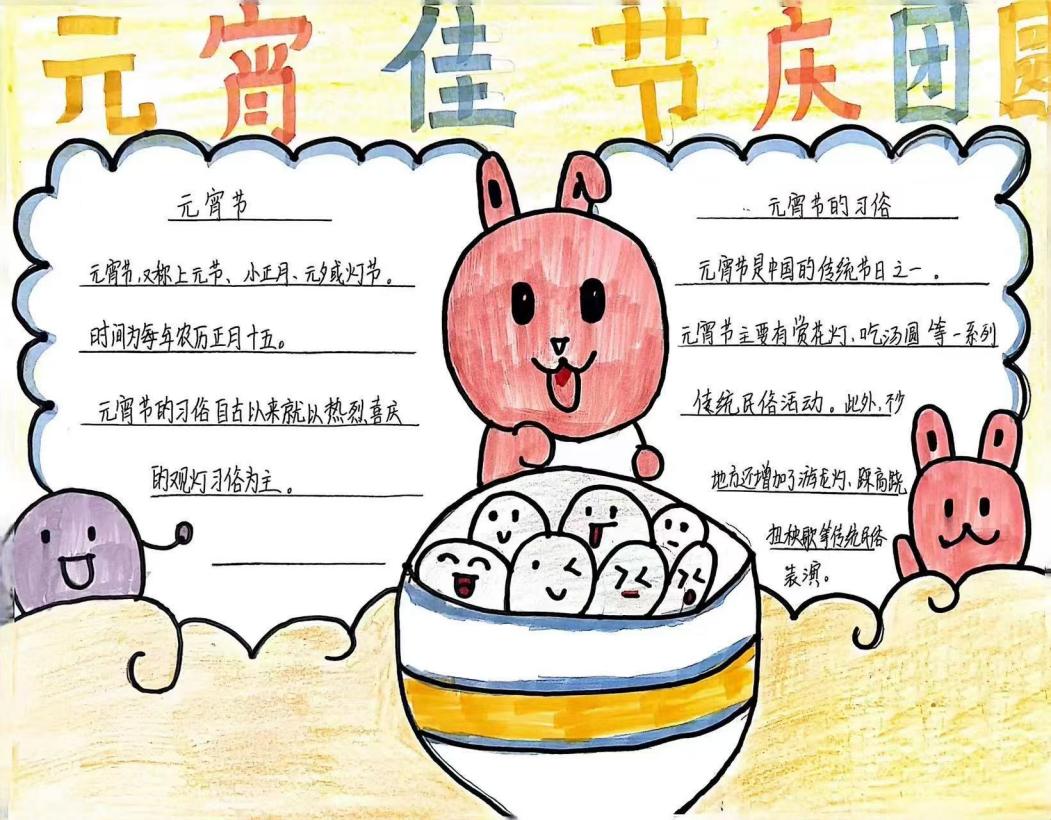 元宵佳节庆团圆
元宵节
元宵节,又称上元节、小正月、元夕或灯节。
时间为每年农历正月十五。
元宵节的习俗自古以来就以热烈喜庆
的观灯习俗为主。
元宵节的习俗
元宵节是中国的传统节日之一。
元宵节主要有赏花灯、吃汤圆等一系列
传统民俗活动。此外,不少
地方还增加了游龙灯、踩高跷
扭秧歌等传统民俗
表演。